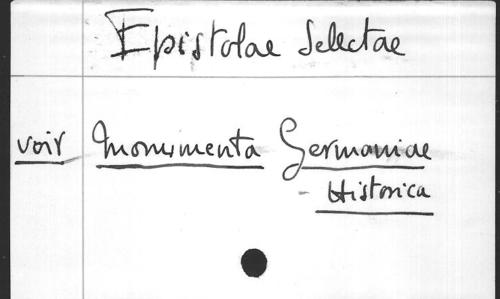 Epistolae Selectae
voir Monumenta Germaniae
- Historica